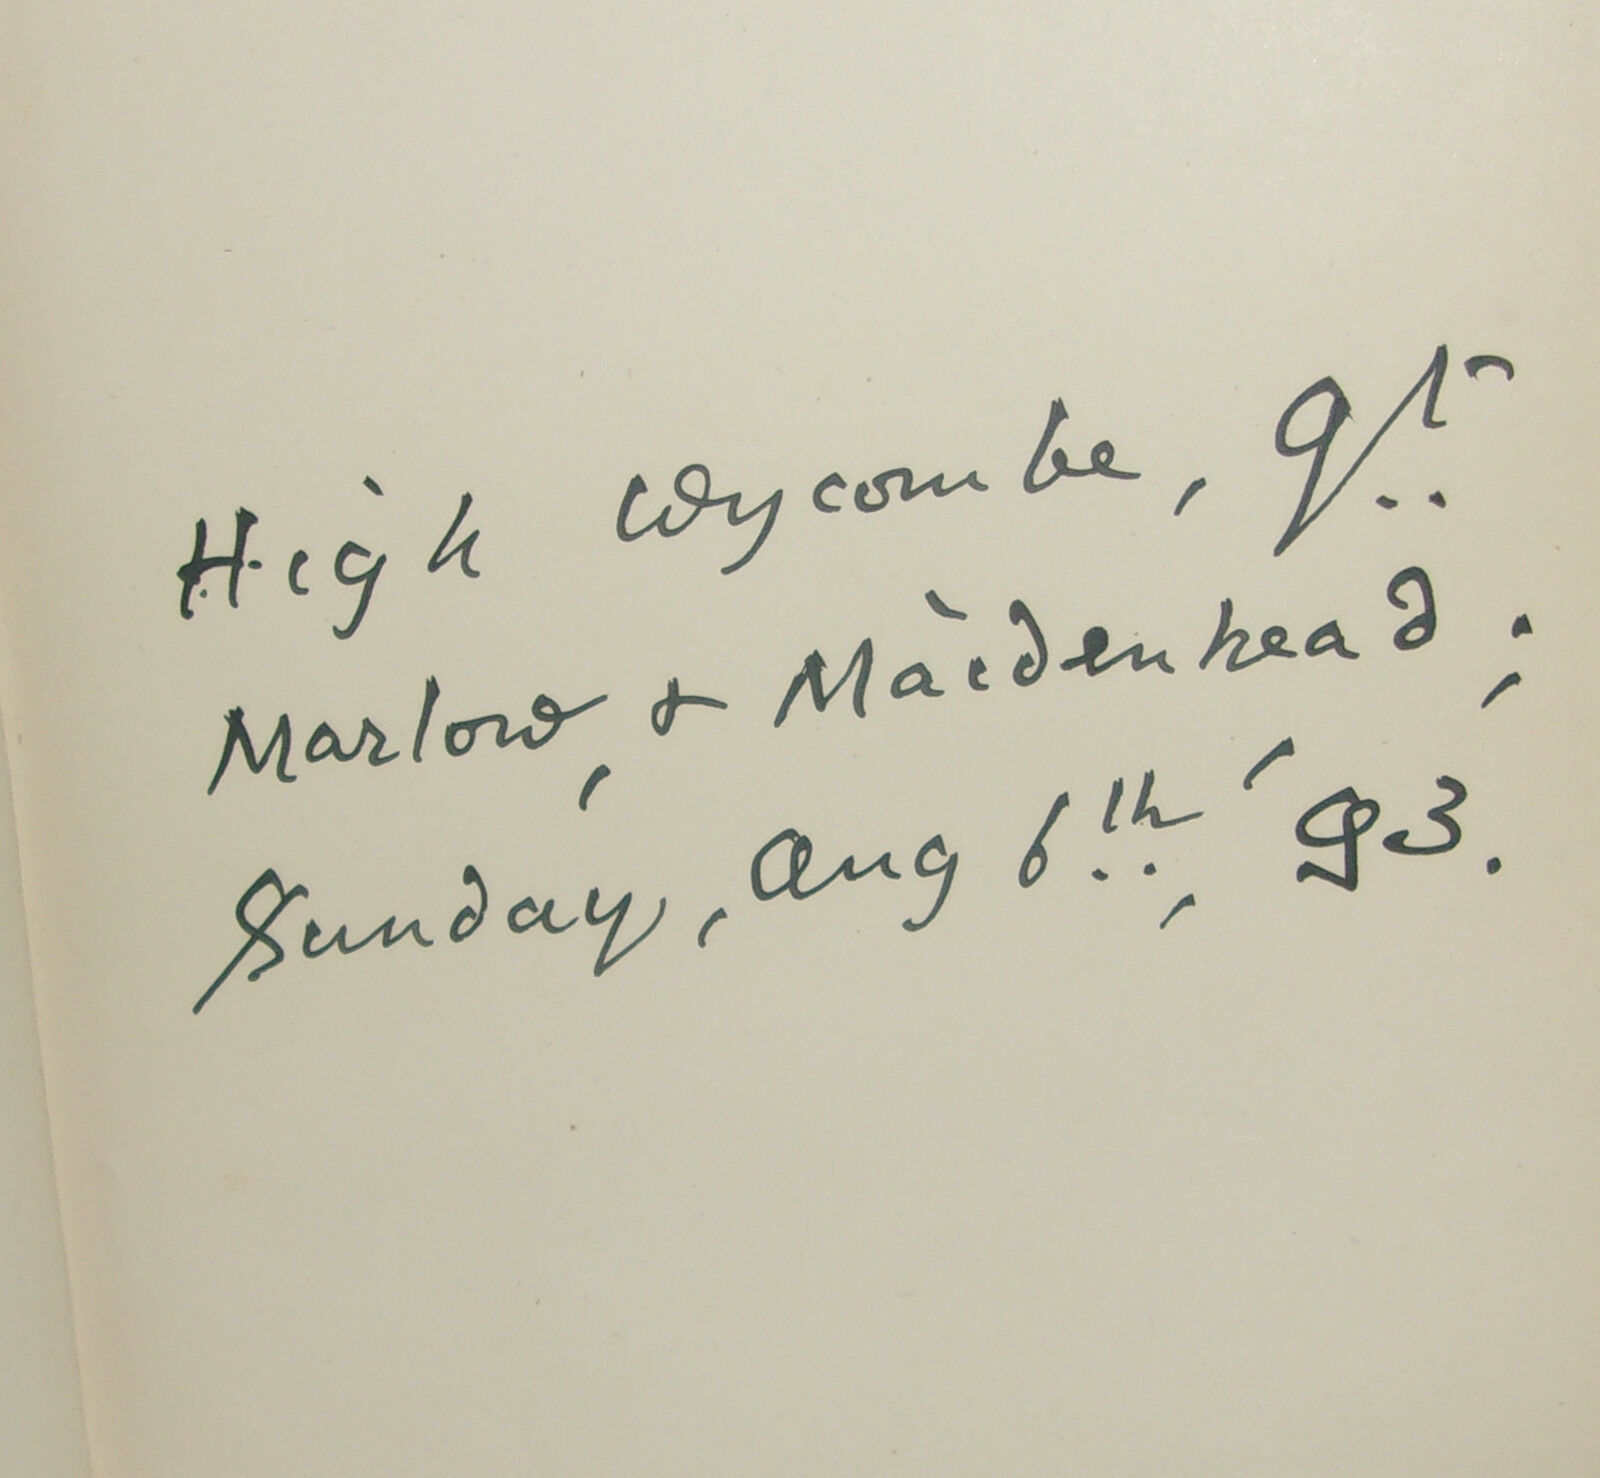 High Wycombe, Gt.
Marlow, & Maidenhead;
Sunday, Aug 6th, '93.